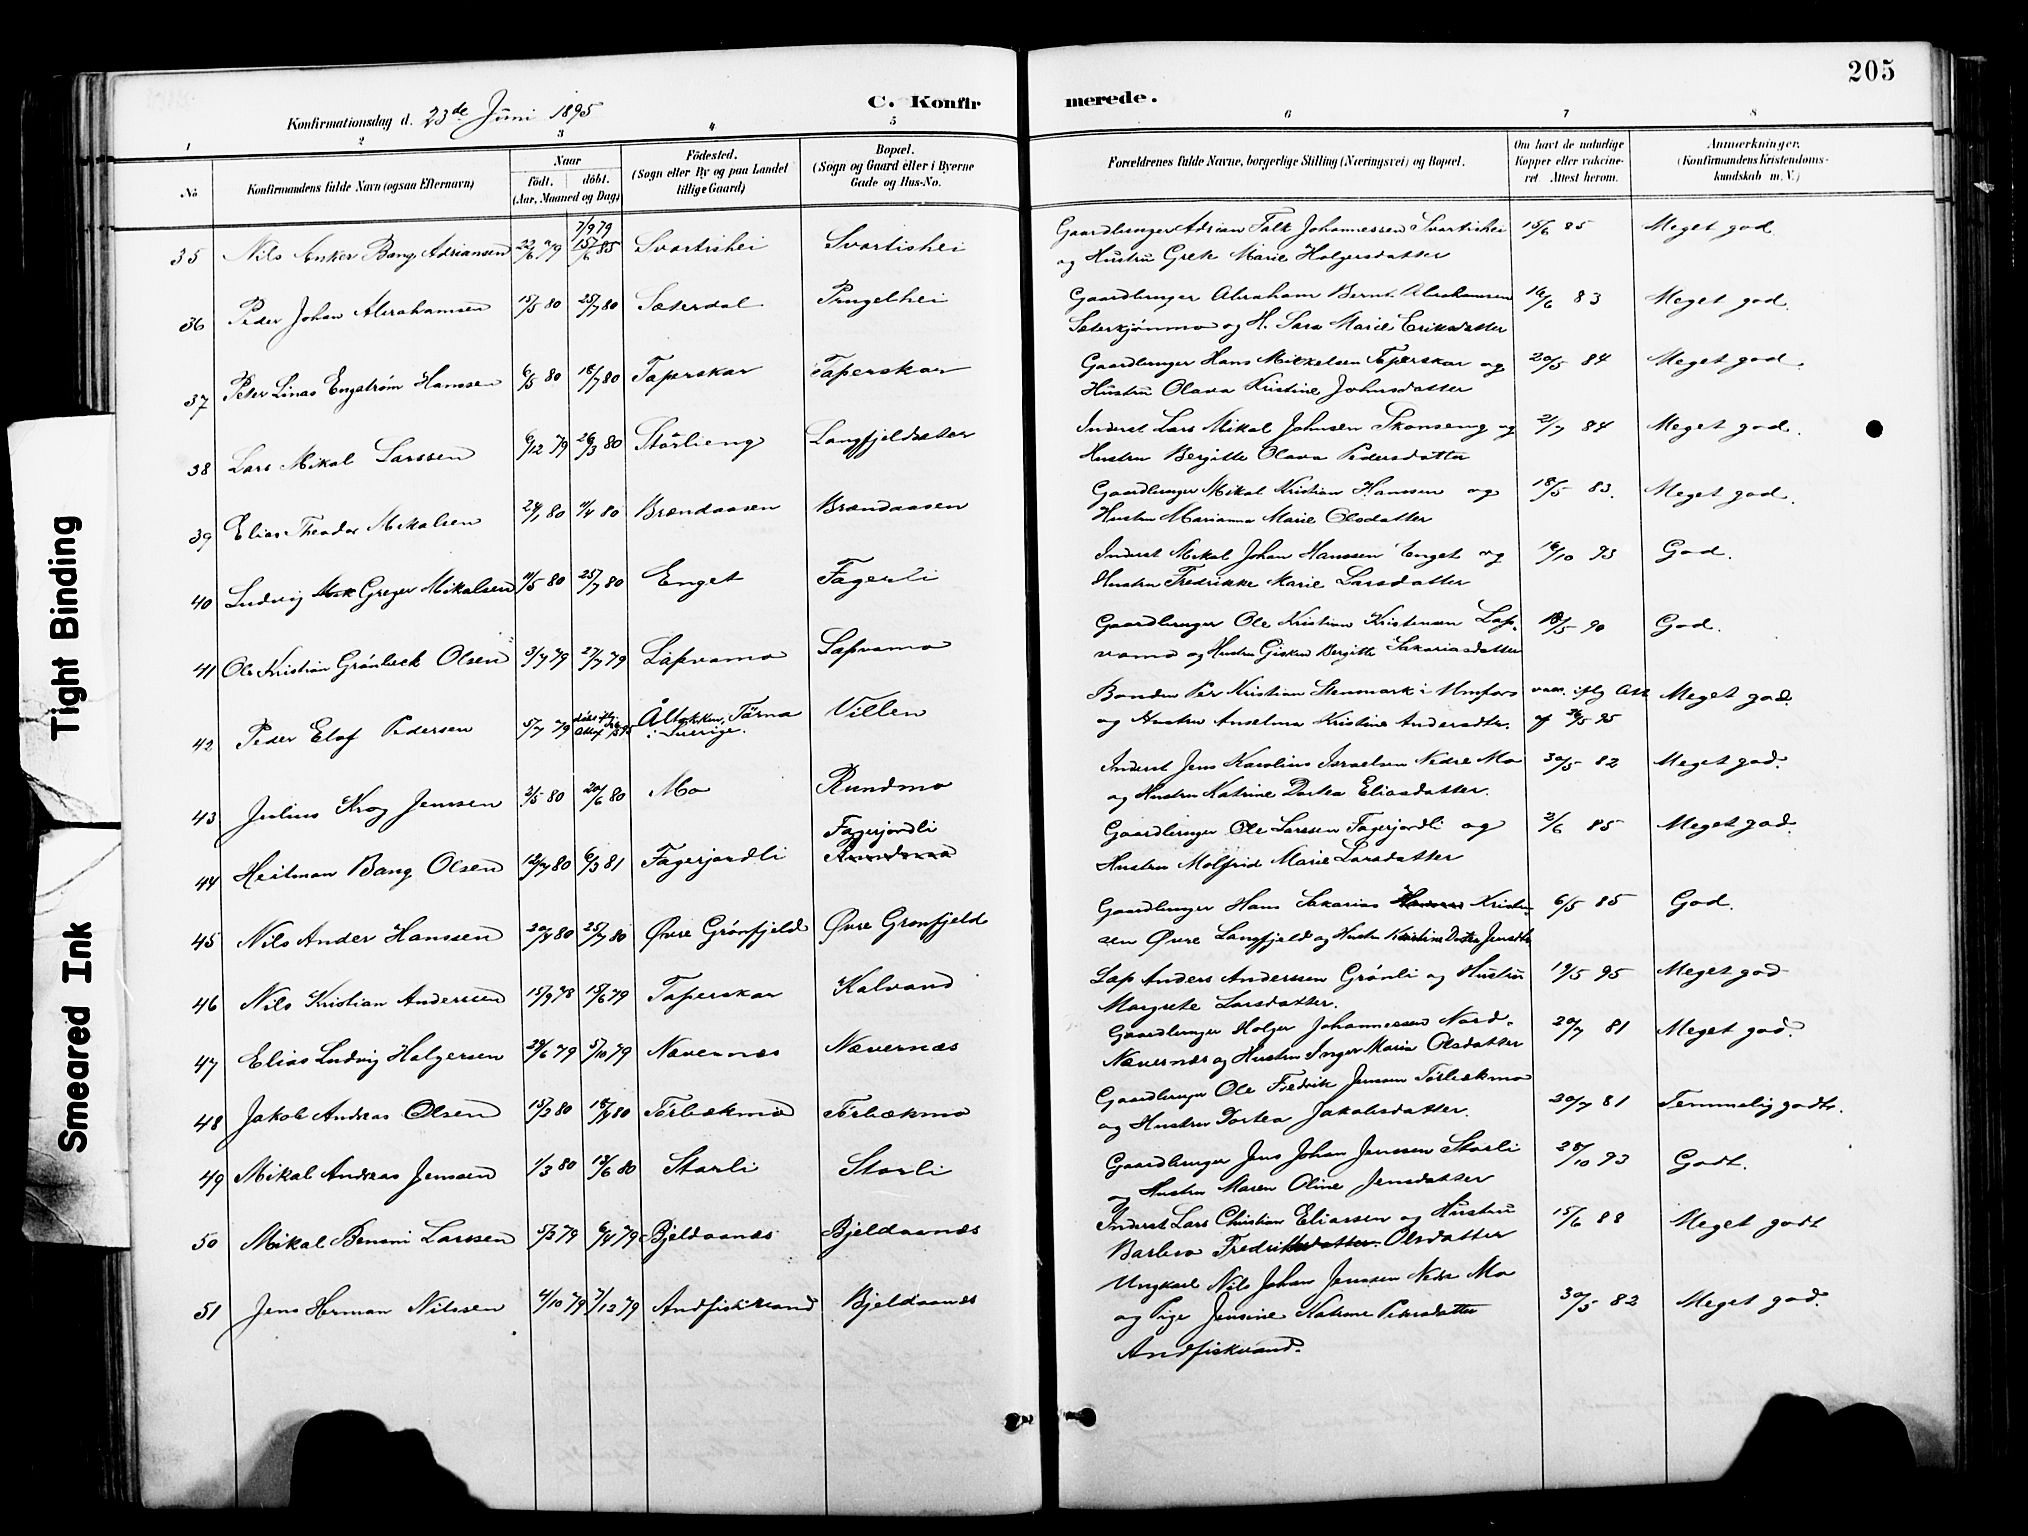 205
Konfirmationsdag d. 23de Juni 1895
C. Konfir merede.
1 2 3 4 5 6 7 8
No
Konfirmandens fulde Navn (ogsaa Efternavn)
Naar
födt. döbt.
(Aar, Maaned og Dag)
Födested.
(Sogn eller By og paa Landet
tillige Gaard)
Bopæl.
(Sogn og Gaard eller i Byerne
Gade og Hus-No.
Forældrenes fulde Navne, borgerlige Stilling (Næringsvei) og Bopæl.
Om havt de naturlige
Kopper eller vakcine-
ret Attest herom.
Anmærkninger.
(Konfirmandens Kristendoms-
kundskab m. V.)
7/9 79
35 Nils Anker Bang Adriansen 22/6 79 15/6 85 Svartishei Svartishei Gaardbruger Adrian Falk Johannessen Svartishei 15/6 85 Meget god.
og Hustru Grete Marie Holgersdatter
36 Peder Johan Abrahamsen 15/5 80 25/7 80 Sæterdal Prugelhei Gaardbruger Abraham Bernt Abrahamsen 16/6 83 Meget god.
Sæterkjønmo og H. Sara Marie Eriksdatter
37 Peter Linas Engstrøm Hanssen 6/5 80 18/7 80 Taperskar Taperskar Gaardbruger Hans Mikkelsen Taperskar og 20/5 84 Meget god.
Hustru Olava Kristine Johnsdatter
38 Lars Mikal Larssen 6/12 79 26/3 80 Storlieng Langfjeldsæter Inderst Lars Mikal Johnsen Skonseng og 21/7 84 Meget god.
Hustru Bergitte Olava Pedersdatter
39 Elias Theodor Mikalsen 24/1 80 11/4 80 Brændaasen Brændaasen Gaardbruger Mikal Kristian Hanssen og 18/5 83. Meget god.
Hustru Marianna Marie Olsdatter
40 Ludvig Greger Mikalsen 11/5 80 25/7 80 Enget Fagerli Inderst Mikal Johan Hanssen Enget og 16/10 93 God.
Hustru Fredrikke Marie Larsdatter
41 Ole Kristian Grønbech Olsen 3/7 79 27/7 79 Lapvamo Lapvamo Gaardbruger Ole Kristian Kristensen Lap- 18/5 90 God.
vamo og Hustru Gisken Bergitte Sakariasdatter
42 Peder Elof Pedersen 5/7 79 Åltokken, Tärna Villen Bonden Per Kristian Stenmark i Umfors vacc. iflg Att Meget god.
i Sverige. og Hustru Anselma Kristine Andersdtr. af 26/5 95
43 Julius Krog Jenssen 2/5 80 20/6 80 Mo Rundmo Inderst Jens Karolius Israelsen Nedre Mo 30/5 82 Meget god.
og Hustru Katrine Dortea Eliasdatter.
44 Heitman Bang Olsen 12/7 80 6/3 81 Fagerjordli Fagerjordli Gaardbruger Ole Larssen Fagerjordli og 2/6 85 Meget god.
Hustru Molfrid Marie Larsdatter
45 Nils Ander Hanssen 20/4 80 25/7 80 Øvre Grønfjeld Øvre Grønfjeld Gaardbruger Hans Sakarias Kristen- 6/5 85 God.
sen Øvre Langfjeld og Hustru Kristine Dortea Jensdtr
46 Nils Kristian Anderssen 15/9 78 15/6 79 Taperskar Kalvand Lap Anders Anderssen Grønli og Hustru 19/5 95 Meget god
Margrete Larsdatter.
47 Elias Ludvig Holgersen 29/6 79 5/10 79 Nævernæs Nævernæs Gaardbruger Holger Johannessen Nord- 20/7 81 Meget god.
Nævernæs og Hustru Inger Maria Olsdatter
48 Jakob Andreas Olsen 15/2 80 18/7 80 Tørbækmo Tørbækmo Gaardbruger Ole Fredrik Jensen Tørbækmo 20/7 81 Temmelig godt.
og Hustru Dortea Jakobsdatter.
49 Mikal Andreas Jenssen 1/3 80 13/6 80 Storli Storli Gaardbruger Jens Johan Jenssen Storli 28/10 93 Godt.
og Hustru Maren Oline Jensdatter
50 Mikal Benoni Larssen 5/3 79 6/4 79 Bjeldaanæs Bjeldaanæs Inderst Lars Christian Eliassen og Hustru 15/6 88 Meget godt
Barbro Fredrikksdatter. Olsdatter
51 Jens Herman Nilssen 4/10 79 7/12 79 Andfiskvand Bjeldaanæs Ungkarl Nils Johan Jenssen Nedre Mo 30/5 82 Meget god.
og Pige Jensine Katrine Petersdatter
Andfiskvand.
Tight Binding
Smeared Ink